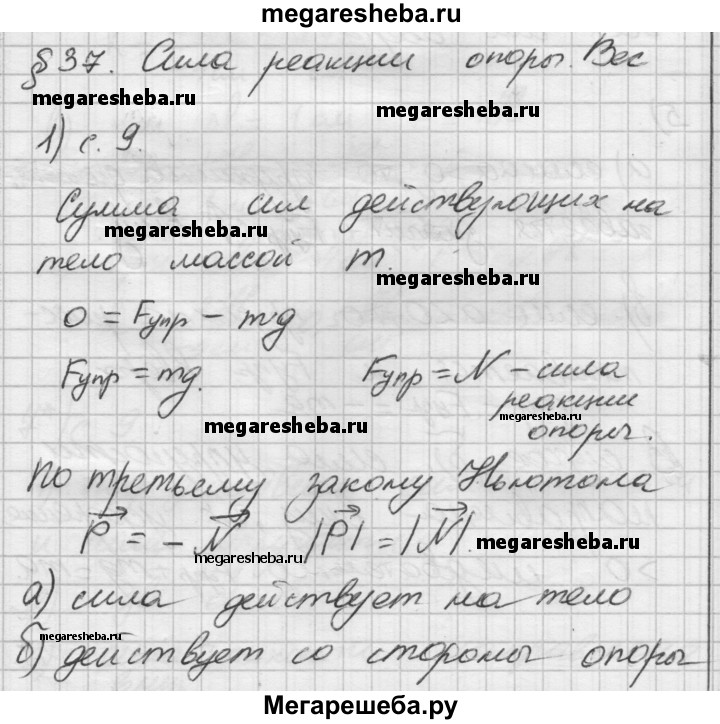 megaresheba.ru
§37. Сила реакции опоры. Вес
megaresheba.ru megaresheba.ru
1) с. 9.
Сумма сил действующих на
megaresheba.ru
тело массой m.
megaresheba.ru
0 = Fупр – mg
Fупр = mg. Fупр = N – сила
реакции
megaresheba.ru
megaresheba.ru
опоры.
По третьему закону Ньютона
P⃗ = – N⃗ |P⃗| = |N⃗|.
megaresheba.ru
megaresheba.ru
а) сила действует на тело
megaresheba.ru
б) действует со стороны опоры
Мегарешеба.ру